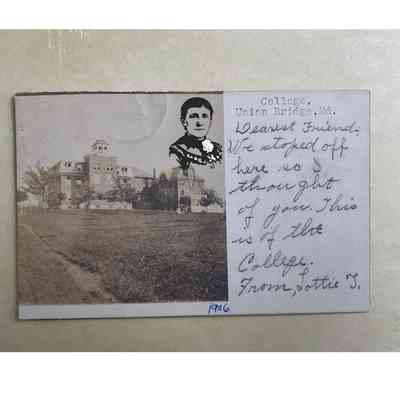 College,
Union Bridge, Md.
Dearest Friend:
We stoped off
here so I
thought
of you. This
is of the
College.
From, Lottie T.
1906